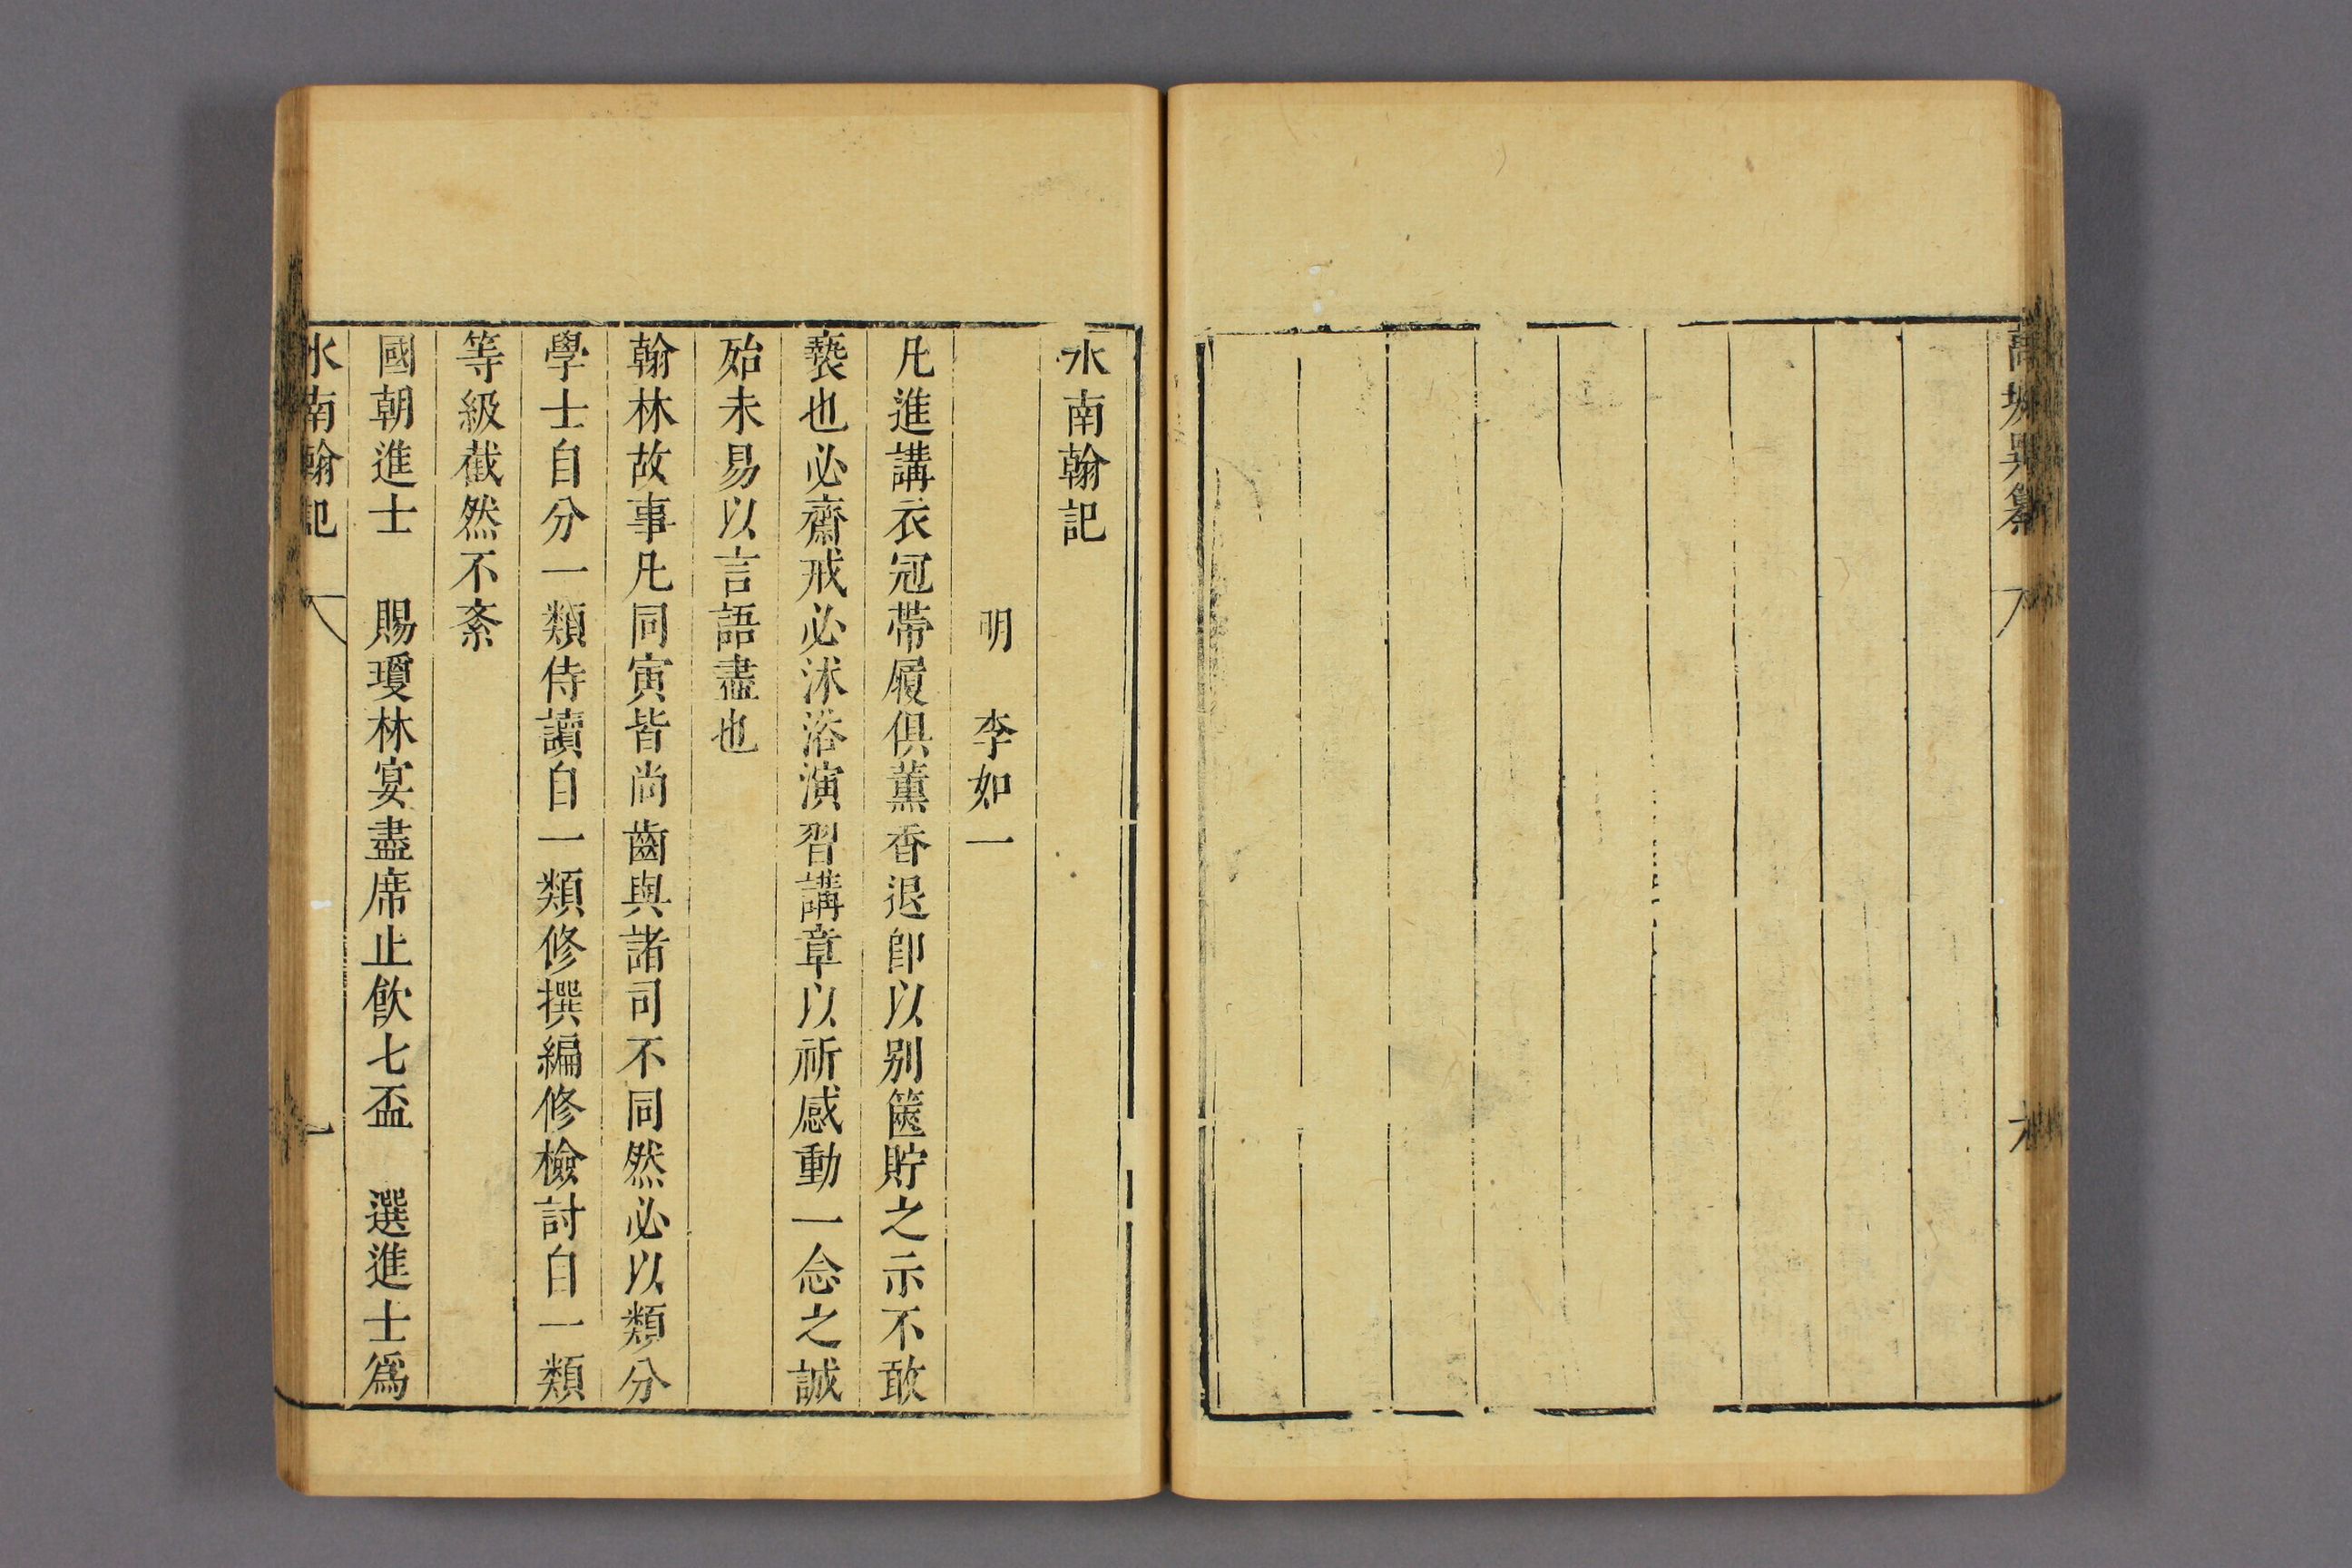 高坡異纂
水南翰記
明 李如一
凡進講衣冠帶履俱薰香退卽以别篋貯之示不敢
褻也必齋戒必沐浴演習講章以祈感動一念之誠
殆未易以言語盡也
翰林故事凡同寅皆尚齒與諸司不同然必以類分
學士自分一類侍讀自一類修撰編修檢討自一類
等級截然不紊
國朝進士 賜瓊林宴盡席止飲七盃 選進士爲
水南翰記 一